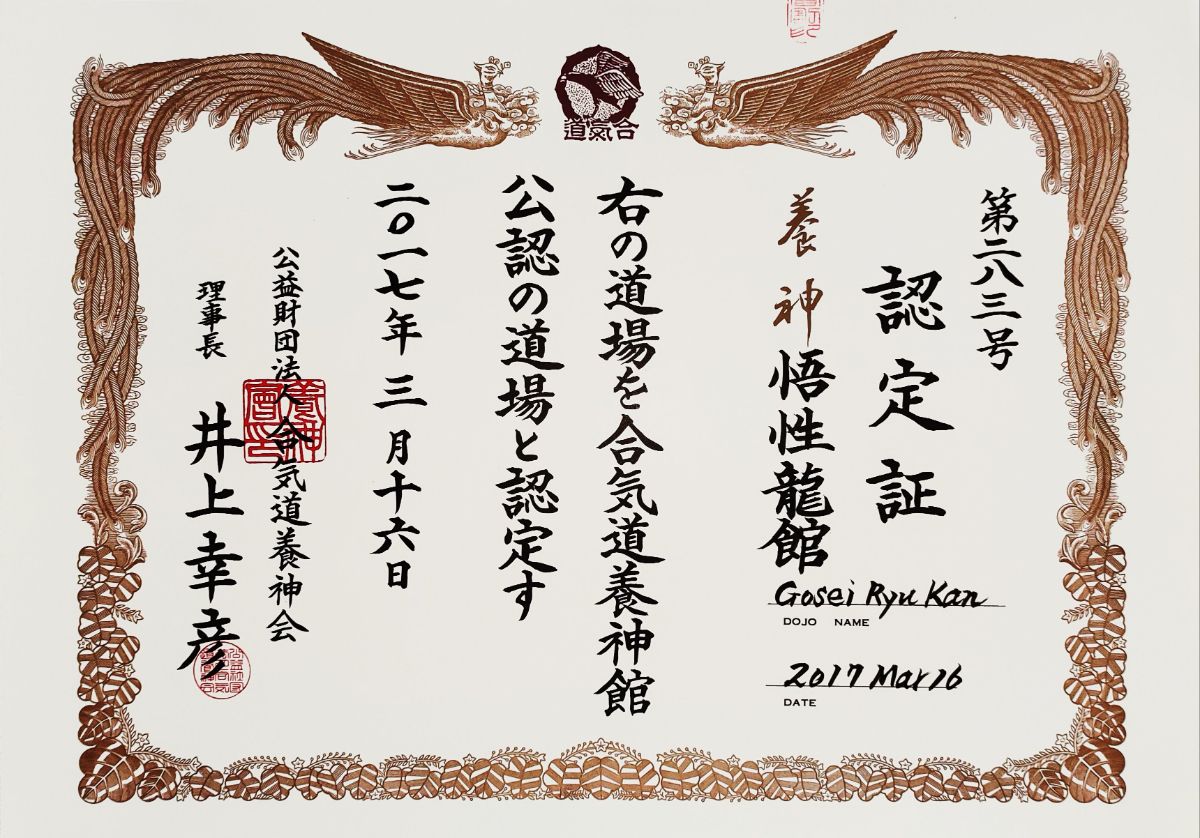 道氣合
第二八三号
認定証
養神
悟性龍館
Gosei Ryu Kan
DOJO NAME
2017 Mar 16
DATE
右の道場を合気道養神館
公認の道場と認定す
二〇一七年三月十六日
公益財団法人合気道養神会
理事長
井上幸彦